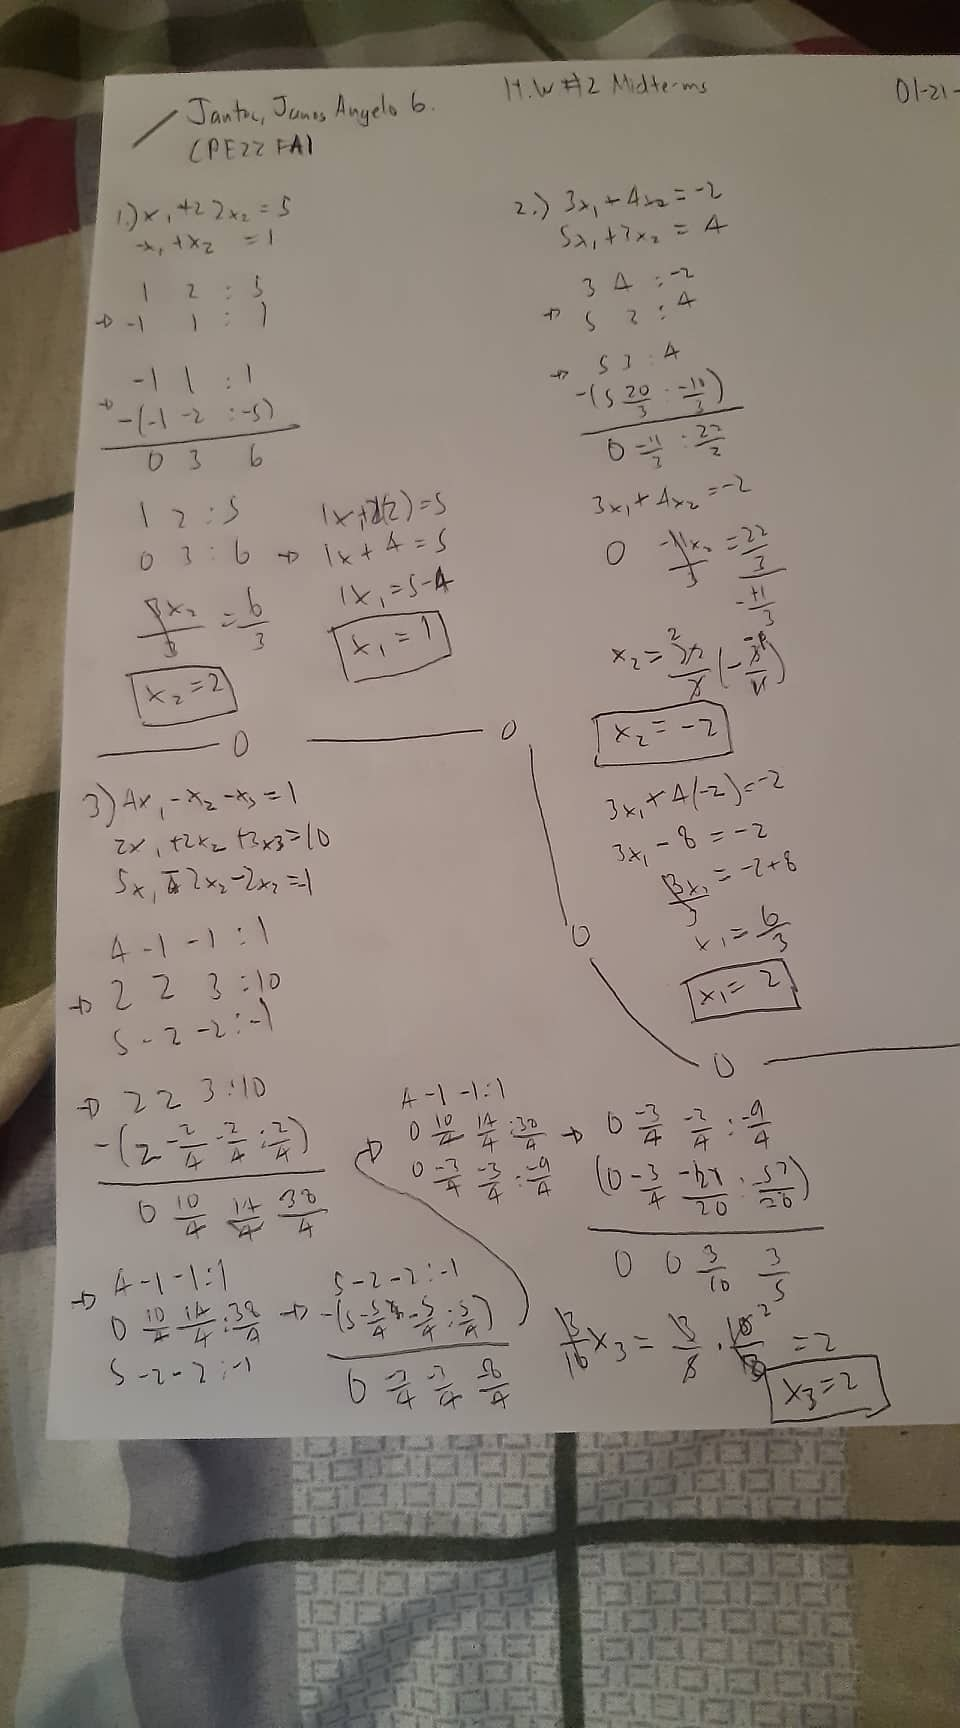 Angelo G. H.W #2 Midterms 01-21-
(PE22 FA1
1.) x₁ + 2 2x₂ = 5
-x₁ + x₂ = 1
1 2 : 5
→ -1 1 : 1
-1 1 : 1
→ -(-1 -2 : -5)
0 3 6
1 2 : 5
0 3 : 6 →
3x₂/3 = 6/3
x₂ = 2
1x + 2(2) = 5
1x + 4 = 5
1x₁ = 5-4
x₁ = 1
2.) 3x₁ + 4x₂ = -2
5x₁ + 3x₂ = 4
3 4 : -2
→ 5 3 : 4
→ 5 3 : 4
-(5 20/3 : -10/3)
0 -11/3 : 22/3
3x₁ + 4x₂ = -2
0 -11x₂/3 = 22/3
-11/3
x₂ =
x₂ = -2
3x₁ + 4(-2) = -2
3x₁ - 8 = -2
3x₁/3 = -2+8
x₁ = 6/3
x₁ = 2
3) 4x₁ - x₂ - x₃ = 1
2x₁ + 2x₂ + 3x₃ = 10
5x₁ - 2x₂ - 2x₂ = -1
4 -1 -1 : 1
→ 2 2 3 : 10
5 -2 -2 : -1
→ 2 2 3 : 10
-(2 -2/4 -2/4 : 2/4)
0 10/4 14/4 38/4
→ 4 -1 -1 : 1
0 10/4 14/4 : 38/4 →
5 -2 -2 : -1
5 -2 -2 : -1
-(5 -5/4 -5/4 : 5/4)
0 -3/4 -3/4 -9/4
4 -1 -1 : 1
→ 0 10/4 14/4 : 38/4 →
0 -3/4 -3/4 : -9/4
0 -3/4 -3/4 : -9/4
(0 -3/4 -21/20 : -57/20)
0 0 3/10 3/5
3/10 x₃ = 3/5 · 10/3 = 2
x₃ = 2